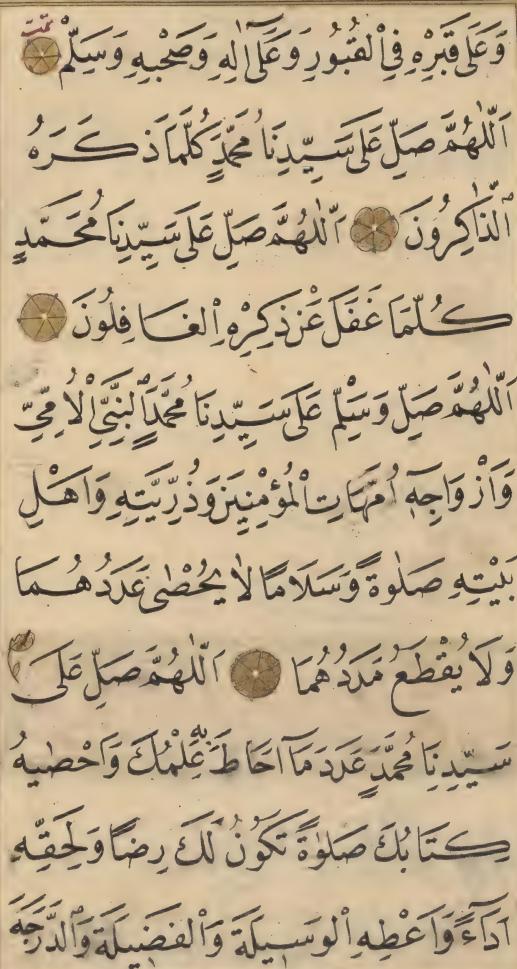 وَعَلٰى قَبْرِهٖ فِي الْقُبُورِ وَعَلٰٓى اٰلِهٖ وَصَحْبِهٖ وَسَلِّمْ
اَللّٰهُمَّ صَلِّ عَلٰى سَيِّدِنَا مُحَمَّدٍ كُلَّمَا ذَكَرَهُ
الذَّاكِرُونَ اَللّٰهُمَّ صَلِّ عَلٰى سَيِّدِنَا مُحَمَّدٍ
كُلَّمَا غَفَلَ عَنْ ذِكْرِهِ الْغَافِلُونَ
اَللّٰهُمَّ صَلِّ وَسَلِّمْ عَلٰى سَيِّدِنَا مُحَمَّدٍ النَّبِيِّ الْاُمِّيِّ
وَاَزْوَاجِهٖ اُمَّهَاتِ الْمُؤْمِنِينَ وَذُرِّيَّتِهٖ وَاَهْلِ
بَيْتِهٖ صَلٰوةً وَسَلَامًا لَا يُحْصٰى عَدَدُهُمَا
وَلَا يُقْطَعُ مَدَدُهُمَا اَللّٰهُمَّ صَلِّ عَلٰى
سَيِّدِنَا مُحَمَّدٍ عَدَدَ مَآ اَحَاطَ بِهٖ عِلْمُكَ وَاَحْصٰيهُ
كِتَابُكَ صَلٰوةً تَكُونُ لَكَ رِضًا وَلِحَقِّهٖ
اَدَآءً وَاَعْطِهِ الْوَسِيلَةَ وَالْفَضِيلَةَ وَالدَّرَجَةَ